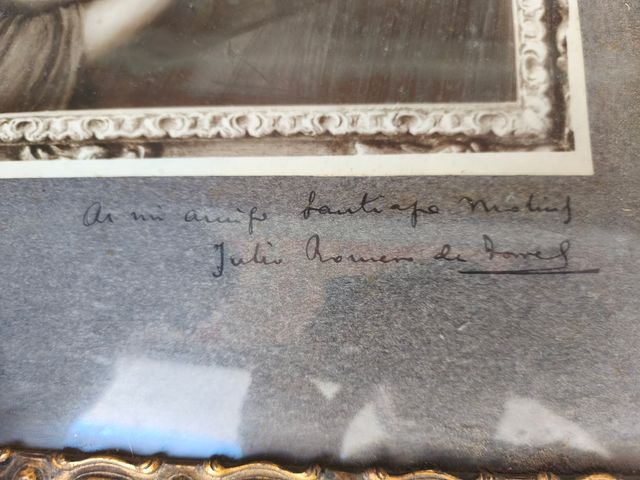 A mi amigo Santiago Molins
Julio Romero de Torres